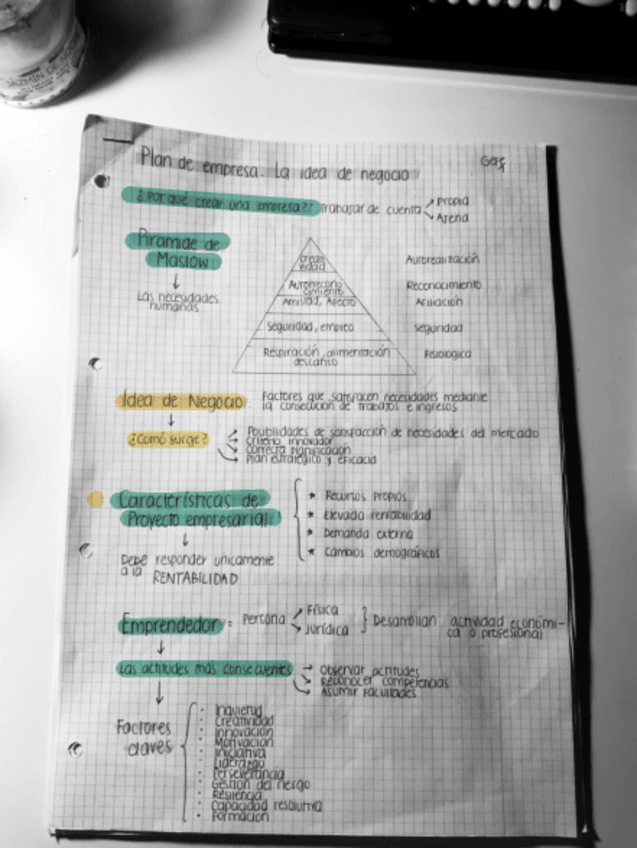 JAZMIN DE
Plan de empresa. La idea de negocio
¿Por qué crear una empresa?: Trabajar de cuenta
Propia
Ajena
Piramide de
Maslow
Las necesidades
humanas
Creati
vidad
Autorrecono
cimiento
Amistad, Afecto
Seguridad, empleo
Respiración, alimentación
descanso
Autorealización
Reconocimiento
Afiliación
Seguridad
Fisiologica
Idea de Negocio: Factores que satisfacen necesidades mediante
la consecución de trabajos e ingresos
¿Comó surge?
Posibilidades de satisfacción de necesidades del mercado
Criterio innovador
Correcta planificación
Plan estratégico y eficacia
Características de
Proyecto empresarial
Debe responder únicamente
a la RENTABILIDAD
* Recursos propios
* Elevada rentabilidad
* Demanda externa
* Cambios demográficos
Emprendedor = Persona
Física
Jurídica
Desarrollan actividad económi-
ca o profesional
Las actitudes más consecuentes
Observar actitudes
Reconocer competencias
Asumir facultades
Factores
claves
· Inquietud
· Creatividad
· Innovación
· Motivación
· Iniciativa
· Liderazgo
· Perseverancia
· Gestión del riesgo
· Resilencia
· Capacidad resolutiva
· Formación